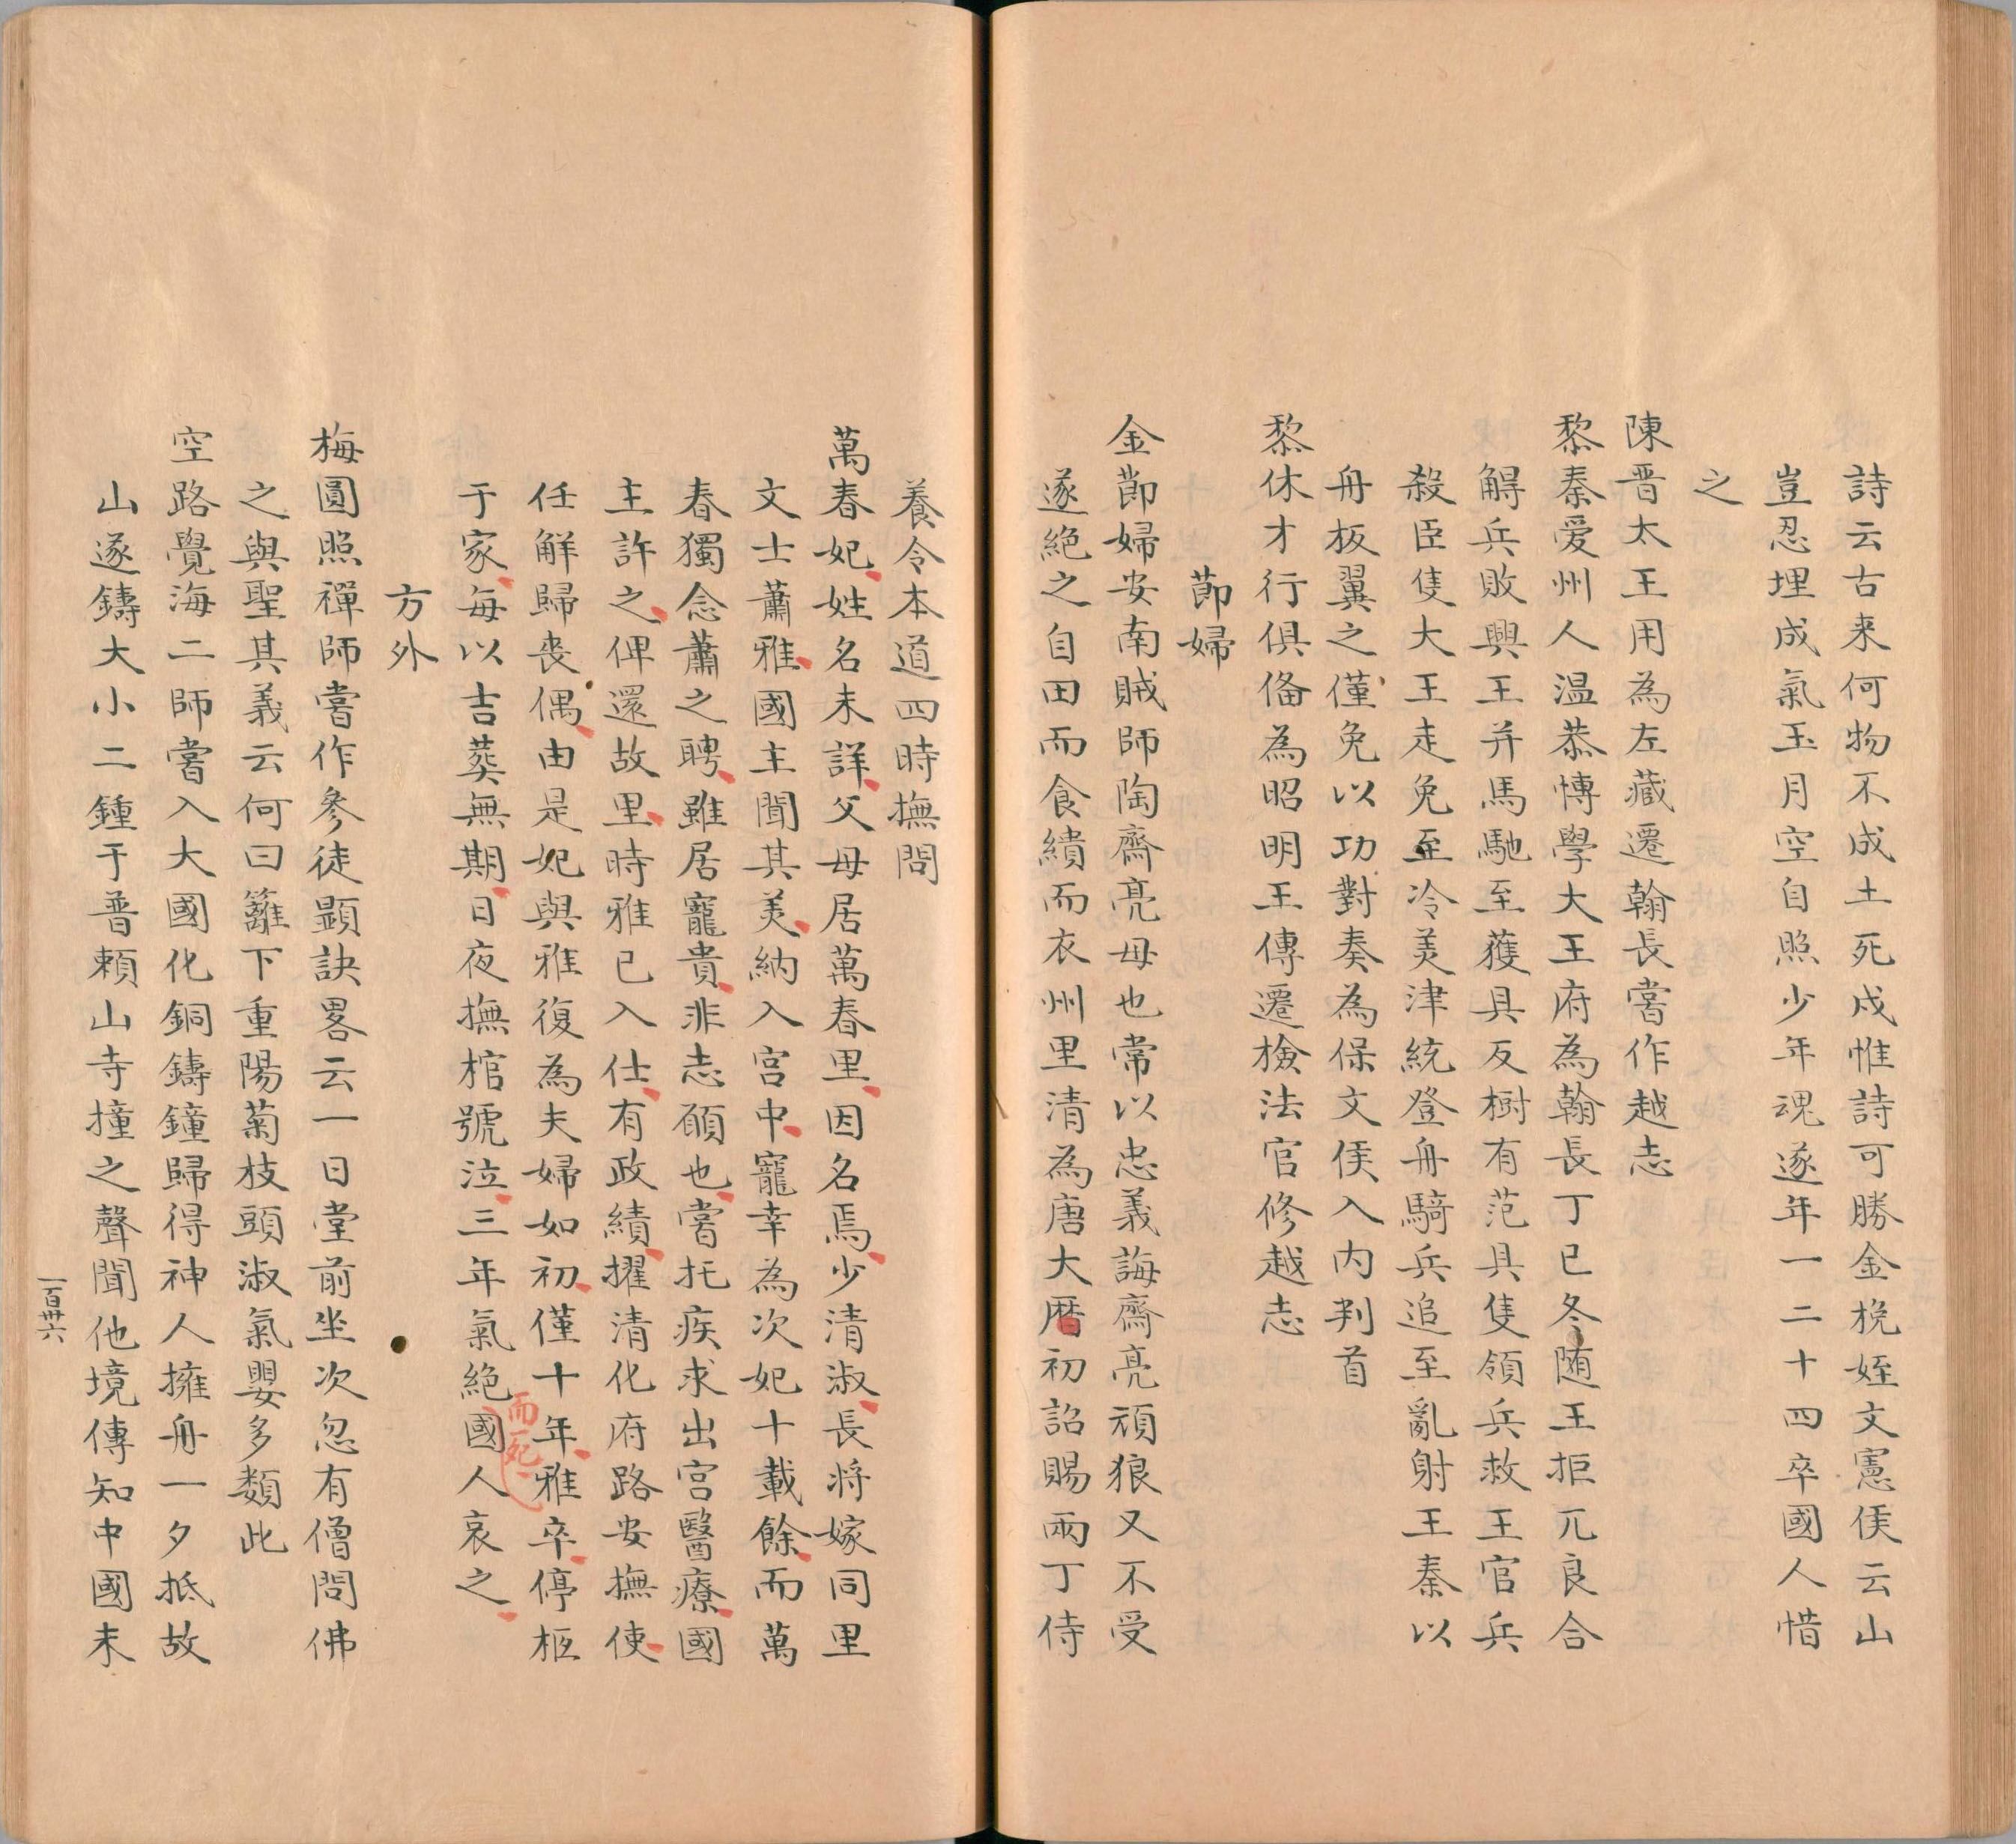 詩云古来何物不成土死戍惟詩可勝金挽姪文憲侯云山
豈忍埋成氣玉月空自照少年魂遂年一二十四卒國人惜
之
陳晋太王用為左藏遷翰長嘗作越志
黎秦爱州人温恭愽學大王府為翰長丁巳冬随王拒兀良合
解兵敗興王并馬馳至獲具反樹有范具隻領兵救王官兵
殺臣隻大王走免至冷美津統登舟騎兵追至亂射王秦以
舟板翼之僅免以功對奏為保文侯入内判首
黎休才行俱俻為昭明王傳遷撿法官修越志
莭婦
金莭婦安南賊師陶齋亮母也常以忠義誨齋亮頑狼又不受
遂絶之自田而食績而衣州里清為唐大曆初詔賜兩丁侍
養令本道四時撫問
萬春妃姓名未詳父母居萬春里因名焉少清淑長将嫁同里
文士蕭雅國主聞其美納入宫中寵幸為次妃十載餘而萬
春獨念蕭之聘雖居寵貴非志願也嘗托疾求出宫醫療國
主許之俾還故里時雅已入仕有政績擢清化府路安撫使
任解歸喪偶由是妃與雅復為夫婦如初僅十年雅卒停柩
于家每以吉葬無期日夜撫棺號泣三年氣絶國人哀之
而死
方外
梅圓照禪師嘗作參徒顕訣畧云一日堂前坐次忽有僧問佛
之與聖其義云何曰籬下重陽菊枝頭淑氣嬰多類此
空路覺海二師嘗入大國化銅鑄鐘歸得神人擁舟一夕抵故
山遂鑄大小二鍾于普頼山寺撞之聲聞他境傳知中國未
一百卅六